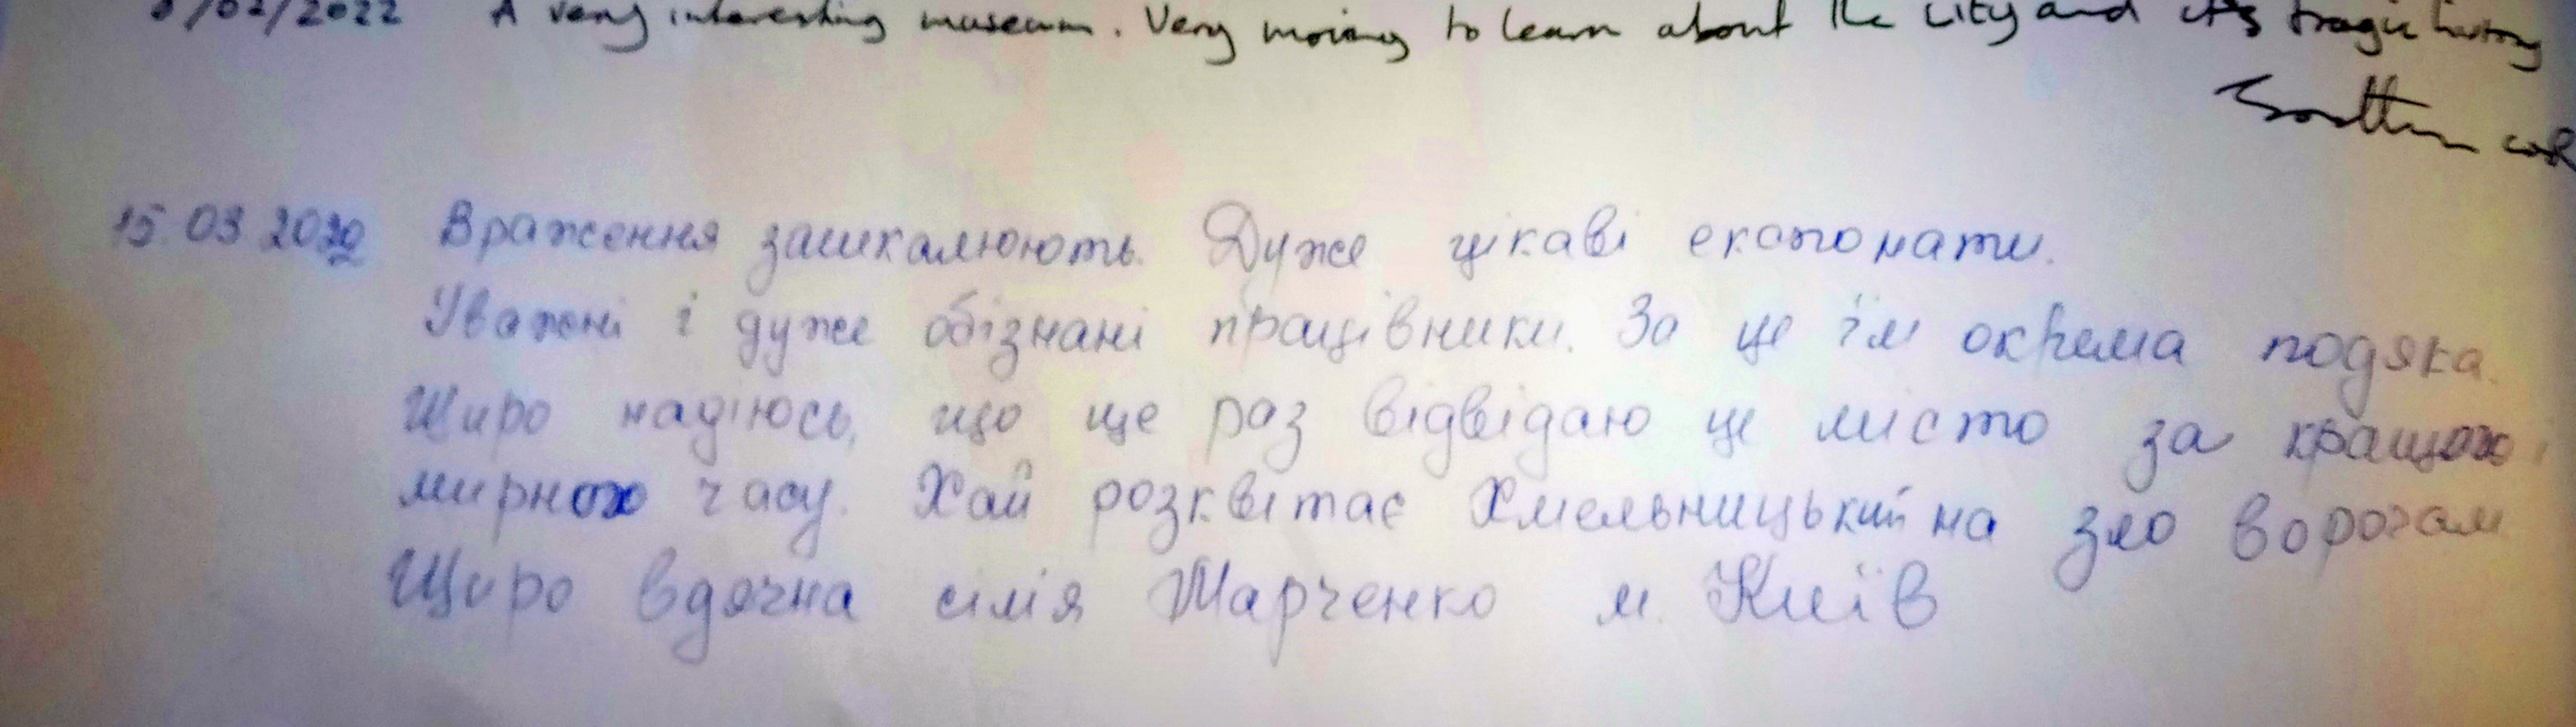 /02/2022 A very interesting museum. Very moving to learn about the city and it's tragic history
15.03.2022 Враження зашкалюють. Дуже цікаві експонати.
Уважні і дуже обізнані працівники. За це їм окрема подяка.
Щиро надіюсь, що ще раз відвідаю це місто за кращого і
мирного часу. Хай розквітає Хмельницький на зло ворогам
Щиро вдячна сімія Марченко м. Київ